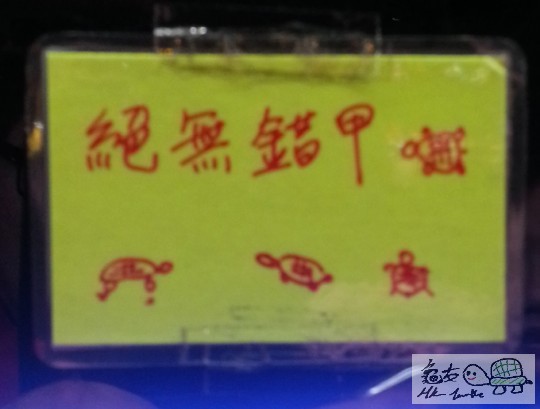 絕無錯甲
龜友
HK Turtle